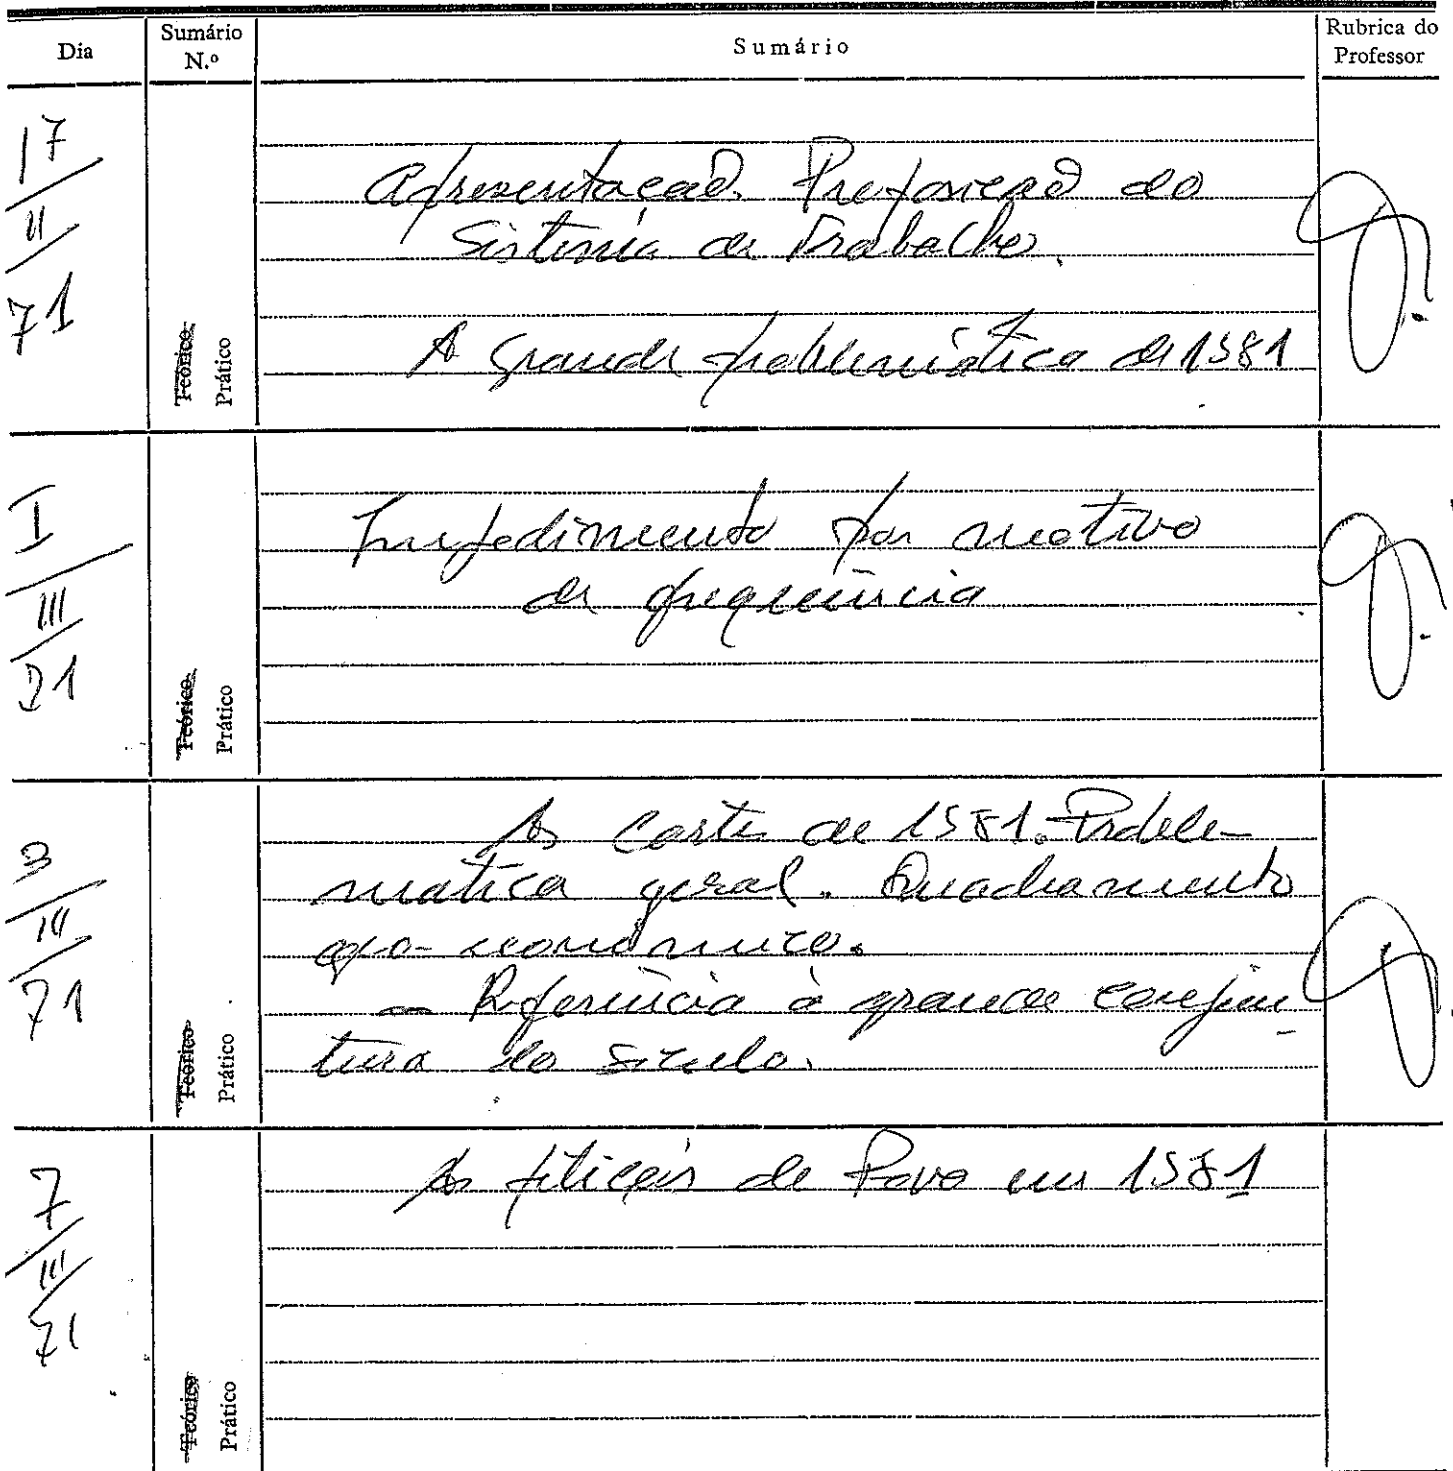 Dia
Sumário
N.º
Sumário
Rubrica do
Professor
17
II
71
Teórico
Prático
Apresentação. Preparação do
Sistema de Trabalho.
A grande problemática de 1581
I
III
71
Teórico
Prático
Impedimento por motivo
de frequência
3
III
71
Teórico
Prático
As Cortes de 1581. Proble-
mática geral. Quadramento
geo-económico.
— Referência à grande conjun-
tura do século.
7
III
71
Teórico
Prático
As petições do Povo em 1581